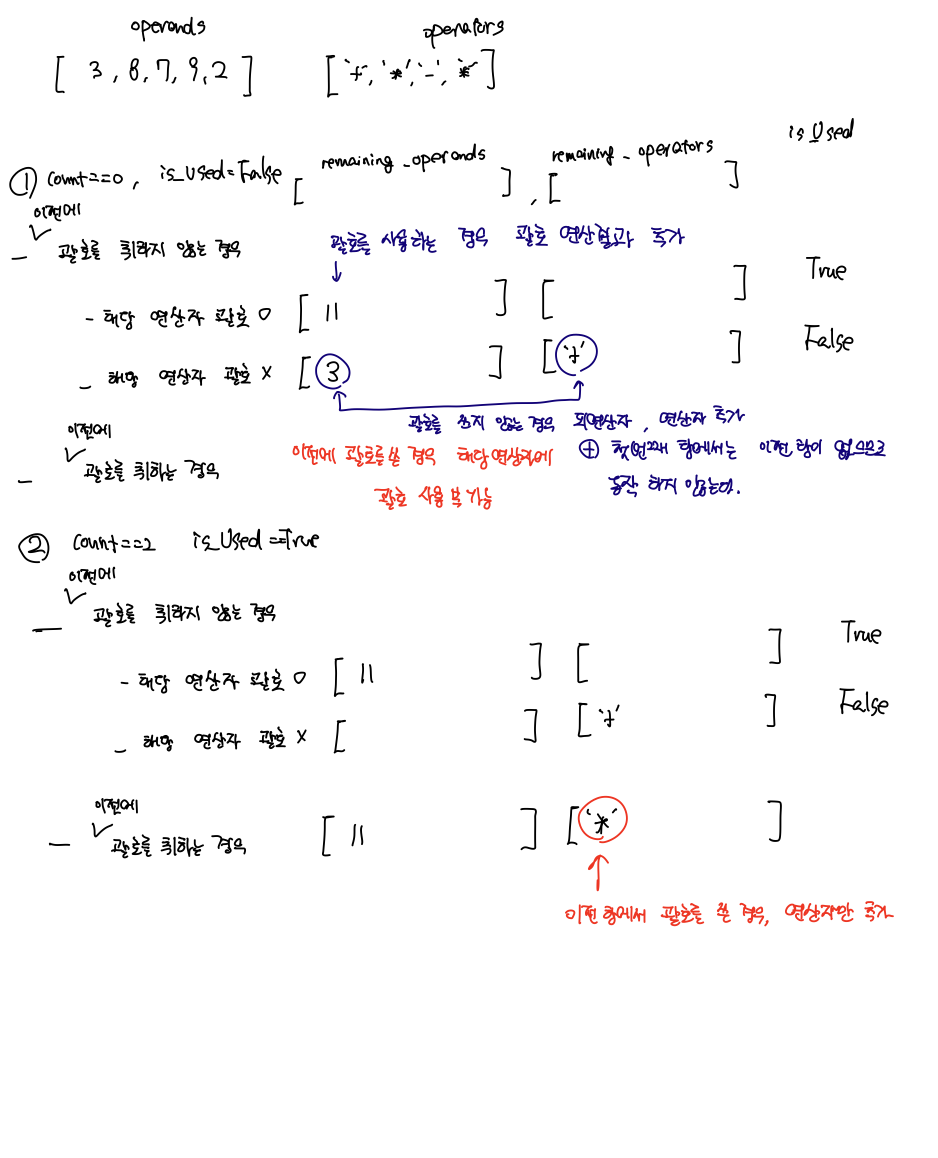 operands operators
[ 3 , 8, 7, 9, 2 ] [ '+', '*', '-', '*' ]
is Used
① count==0 , is_Used=False [ remaining_operands ] , [ remaining_operators ]
이전에
- 괄호를 취하지 않는 경우 괄호를 사용하는 경우 괄호 연산결과 추가
- 해당 연산자 괄호 O [ 11 ] [ ] True
- 해당 연산자 괄호 X [ 3 ] [ '+' ] False
괄호를 쓰지 않는 경우 피연산자 , 연산자 추가
이전에
- 괄호를 취하는 경우 이전에 괄호를 쓴 경우 해당연산자에 ⊕ 첫번째 항에서는 이전 항이 없으므로
괄호 사용 불가능 동작 하지 않는다.
② count==2 is_Used==True
이전에
- 괄호를 취하지 않는 경우
- 해당 연산자 괄호 O [ 11 ] [ ] True
- 해당 연산자 괄호 X [ ] [ '+' ] False
이전에
- 괄호를 취하는 경우 [ 11 ] [ '*' ]
이전 항에서 괄호를 쓴 경우, 연산자만 추가